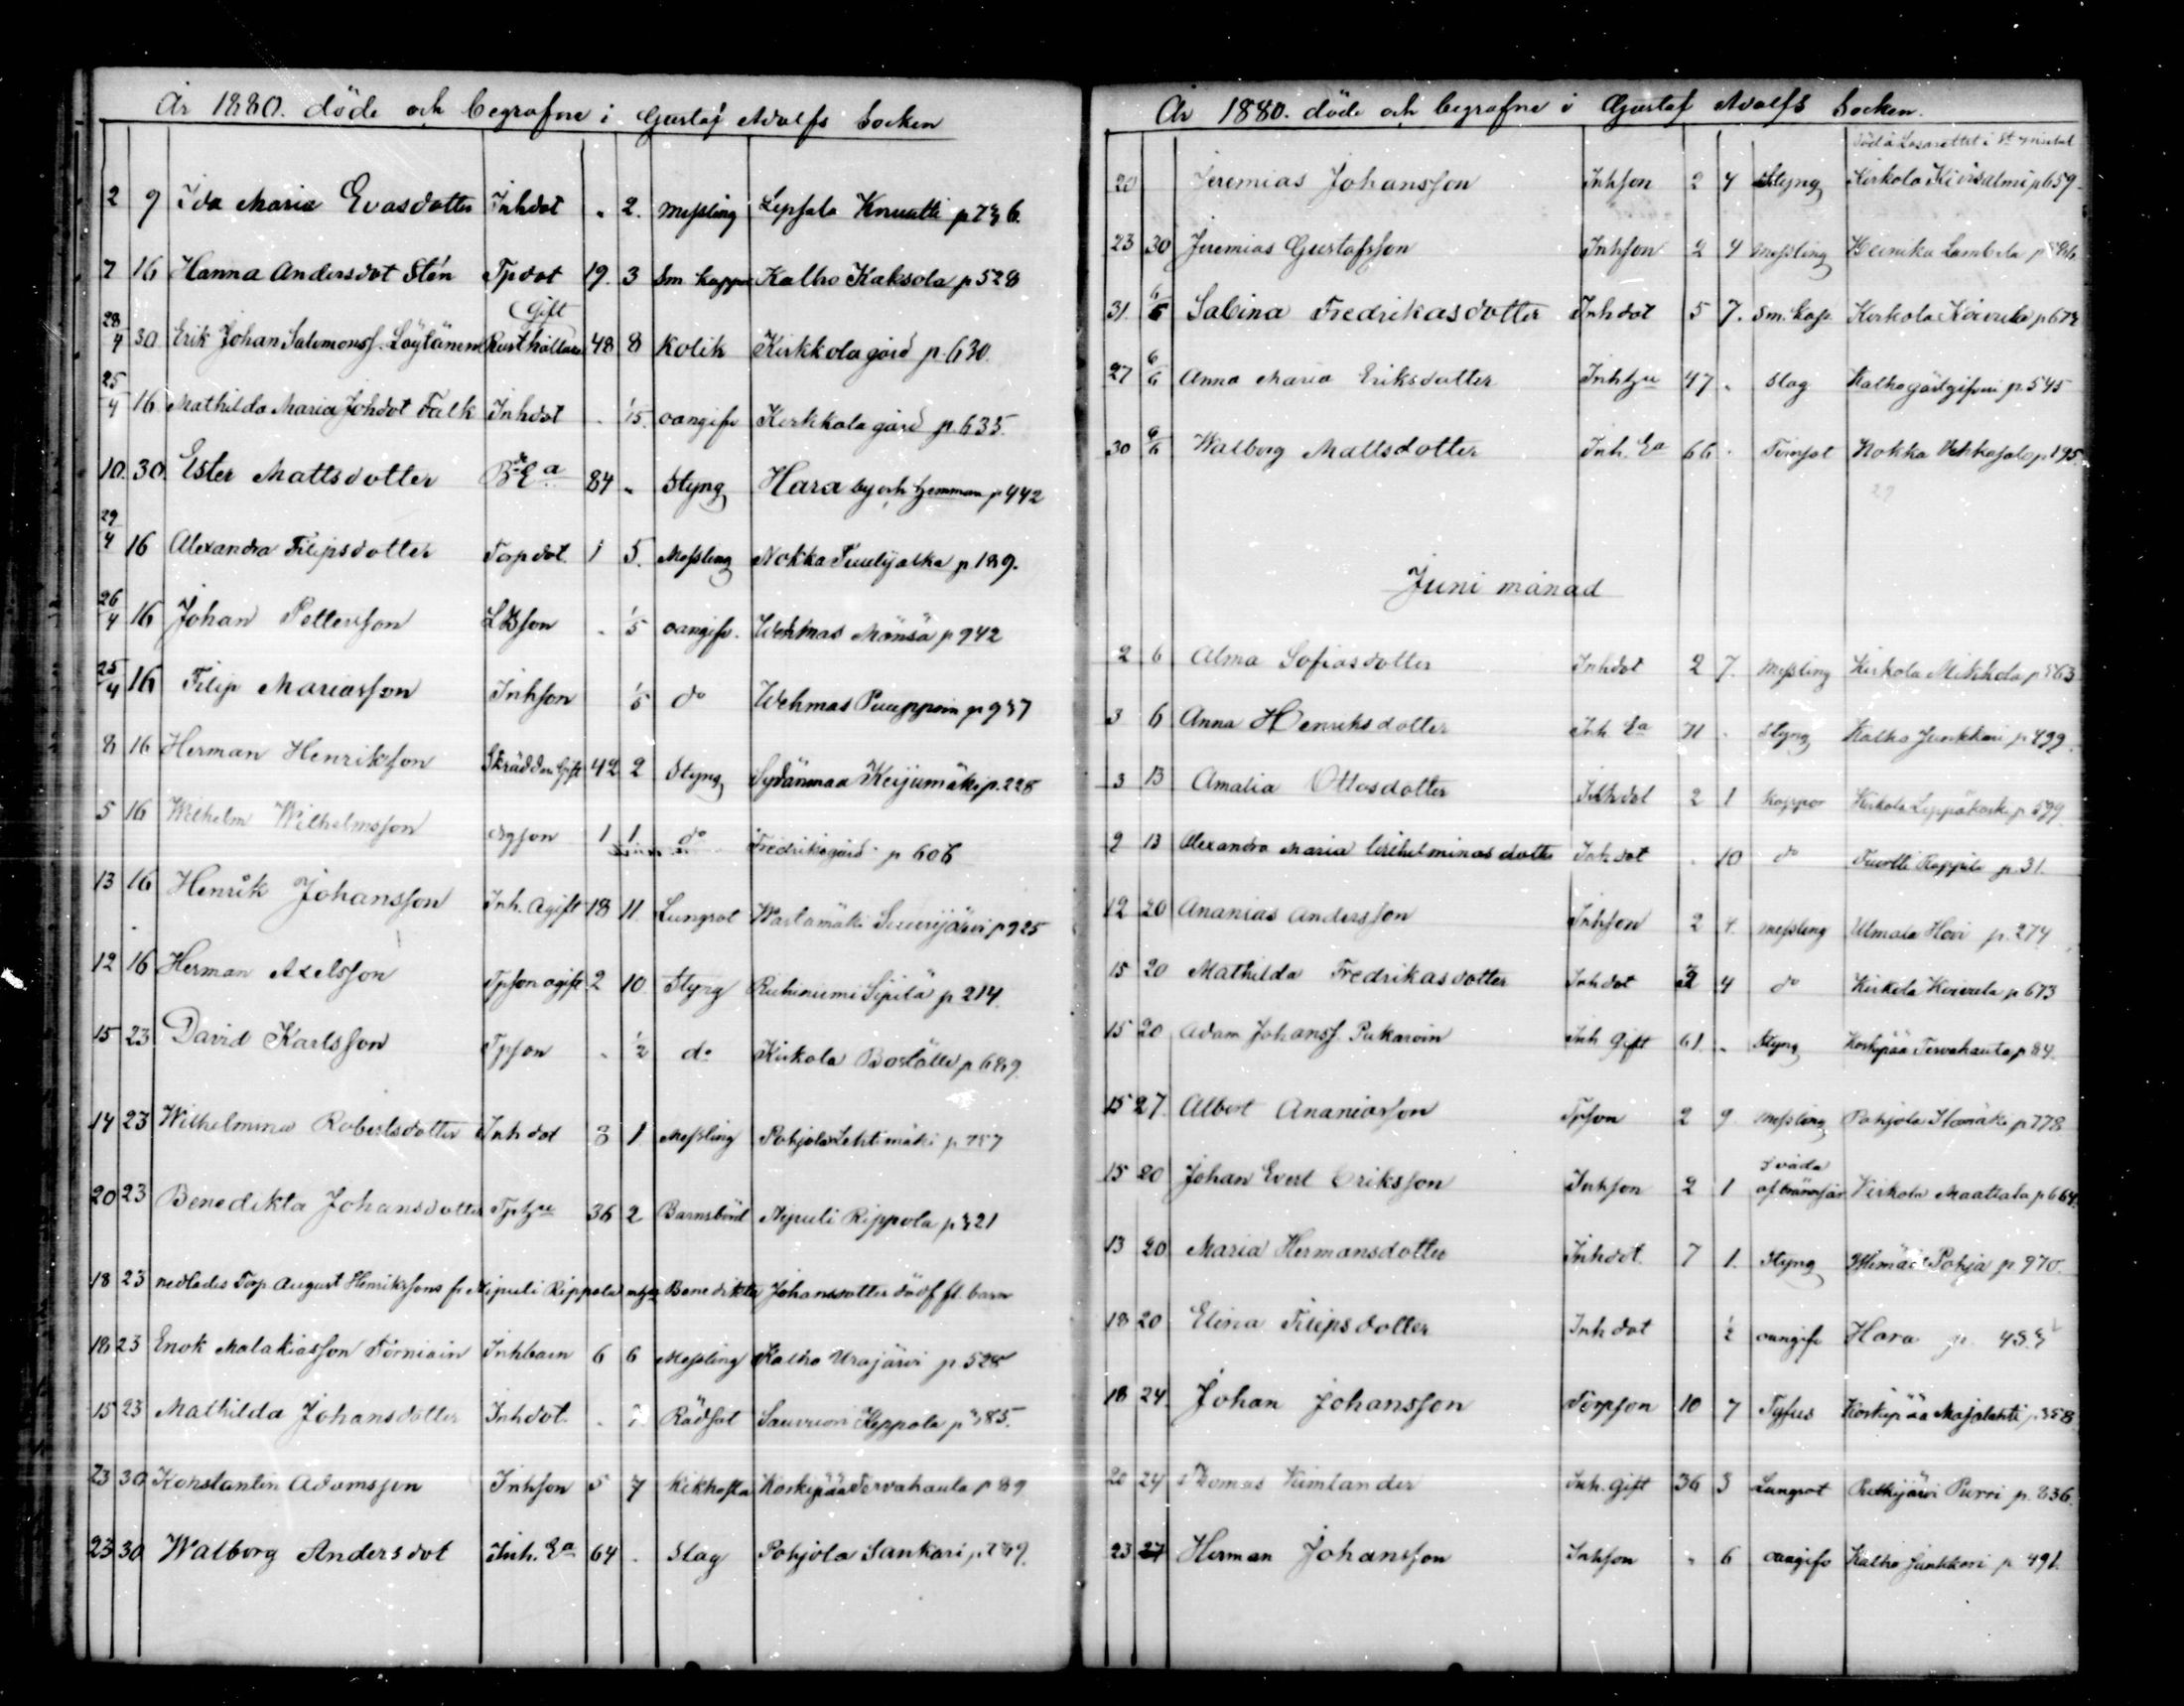 År 1880. döde och begrafne i Gustaf Adolfs Socken
2 9 Ida Maria Evasdotter Inhdot „ 2. Messling Lepsala Knuutti p 736.
7 16 Hanna Andersdot Stén Tpdot 19. 3 Sm koppor Kalho Kaksola p 528
28/4 30 Erik Johan Salomonss. Löylänen Gift Rusthållare 48 8 Kolik Kirkkola gård p. 630.
25/4 16 Mathilda Maria Johdot Falk Inhdot „ 1/15. oangifv Kirkkola gård p. 635.
10. 30. Ester Mattsdotter Bde Ea 84 „ Styng Hara by och hemman p 442
29/4 16 Alexandra Filipsdotter Torpdot. 1 5. Messling Nokka p. 189.
26/4 16 Johan Pettersson LBson „ 1/5 oangifv. Wehmas Mänsä p 942
25/4 16 Filip Mariasson Inhson 1/5 do Wehmas p 937
8 16 Herman Henriksson Skräddar Gift 42 2 Styng Sydänmaa Keijumäki p. 228
5 16 Wilhelm Wilhelmsson 1 1 do Fredriksgård p 606
13 16 Henrik Johansson Inh. Ogift 18 11. Lungsot Wartamäki Suurijärvi p 925
12 16 Herman Axelsson Tpson ogift 2 10 Styng Ruhiniemi Sipilä p 214.
15 23 David Karlsson Tpson „ 1/2 do Kirkola Boställe p 689.
14 23 Wilhelmina Robertsdotter Inhdot 3 1 Messling Pohjola Lehtimäki p 757
20 23 Benedikta Johansdotter Tphu 36 2 Barnsbörd Nipuli Rippola p 321
18 23 nedlades Torp. August Henrikssons fr. Nipuli Rippola Benedikta Johansdotter dödf fl. barn
18 23 Enok Malakiasson Törniäin Inhbarn 6 6 Messling Kalho Urajärvi p. 528
15 23 Mathilda Johansdotter Inhdot „ Rödsot Kyppola p 385.
23 30 Konstantin Adamsson Inhson 5 7 Kikhosta Koskipää Tervahauta p 89
23 30 Walborg Andersdot Inh. Ea 64 „ Slag Pohjola Sankari p. 789.
År 1880. döde och begrafne i Gustaf Adolfs Socken.
död å Lasarettet i St Michel
20 Jeremias Johansson Inhson 2 4 Styng Kirkola Kivisalmi p 659
23 30 Jeremias Gustafsson Inhson 2 4 Messling Heinika Lambila
31. 6/6 Sabina Fredrikasdotter Inhdot 5 7. Sm. kop. Kirkola Koivula p 673
27 6/6 Anna Maria Eriksdotter Inhhu 47 „ Slag Kalho gästgifveri p. 545
30 6/6 Walborg Mattsdotter Inh. Ea 66 „ Tvinsot Nokka Vehkasalo p. 195.
29
Juni månad
2 6 Alma Sofiasdotter Inhdot 2 7. Messling Kirkola Mikkola p 563
3 6 Anna Henriksdotter Inh Ea 71 „ Styng Kalho Junkkari p 499.
3 13 Amalia Ottosdotter Inhdot 2 1 Koppor Kirkola Leppäkoski p 599
9 13 Alexandra Maria Wilhelminasdotter Inhdot „ 10 do Rappila p. 31.
12 20 Ananias Andersson Inhson 2 4. Messling Ulmala Hovi p. 274
15 20 Mathilda Fredrikasdotter Inhdot 2 4 do Kirkola Koivula p 673
15 20 Adam Johanss. Pukaroin Inh Gift 61. „ Styng Koskipää Tervahauta p 84.
15 27. Albert Ananiasson Tpson 2 9 Messling Pohjola p 778
15 20 Johan Evert Eriksson Inhson 2 1 Kirkola Maattala p 664.
13 20 Maria Hermansdotter Inhdot. 7 1. Styng Pohja p 970.
18 20 Elina Filipsdotter Inhdot 1/2 oangifv Hara p. 453
18 24. Johan Johansson Torpson 10 7 Tyfus Koskipää Majalahti p. 358
20 24 Thomas Kimlander Inh. Gift 36 3 Lungsot Putkijärvi Purri p. 836.
23 27 Herman Johansson Inhson „ 6 oangifv Kalho Junkkari p 491.